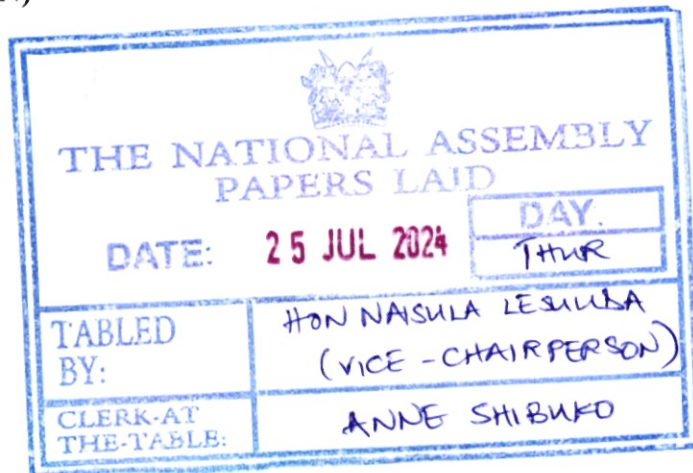 THE NATIONAL ASSEMBLY
PAPERS LAID
DATE: 25 JUL 2024
DAY.
THUR
TABLED
BY:
HON NAISULA LESUUDA
(VICE-CHAIRPERSON)
CLERK-AT
THE-TABLE:
ANNE SHIBUKO